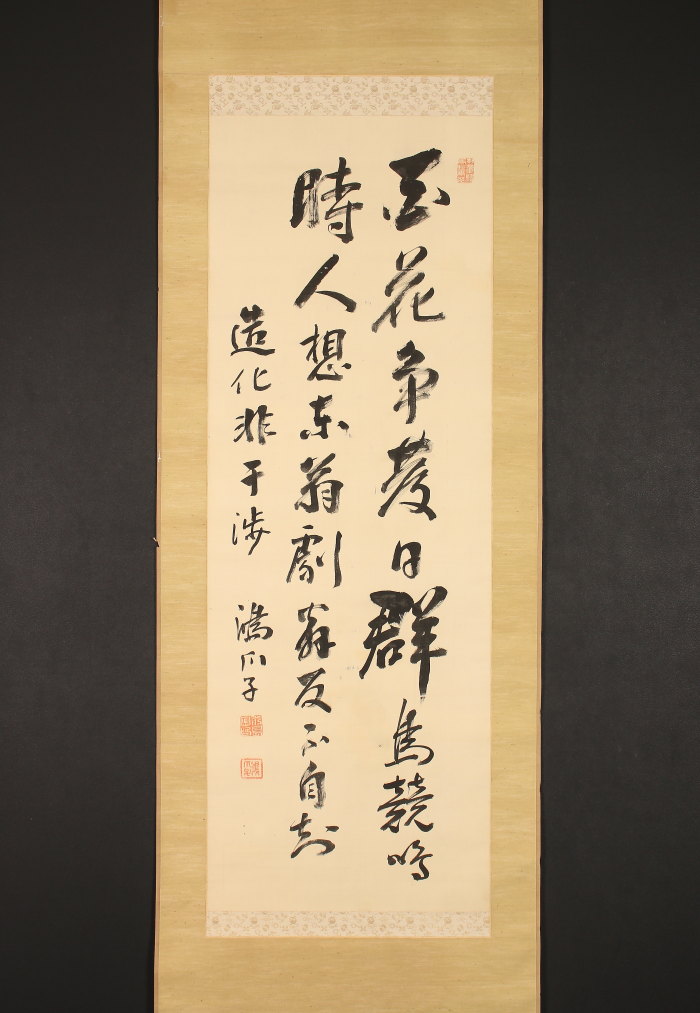 百花争發日群鳥競鳴
時人想東翁劇反不自知
造化非干渉
鴻爪子